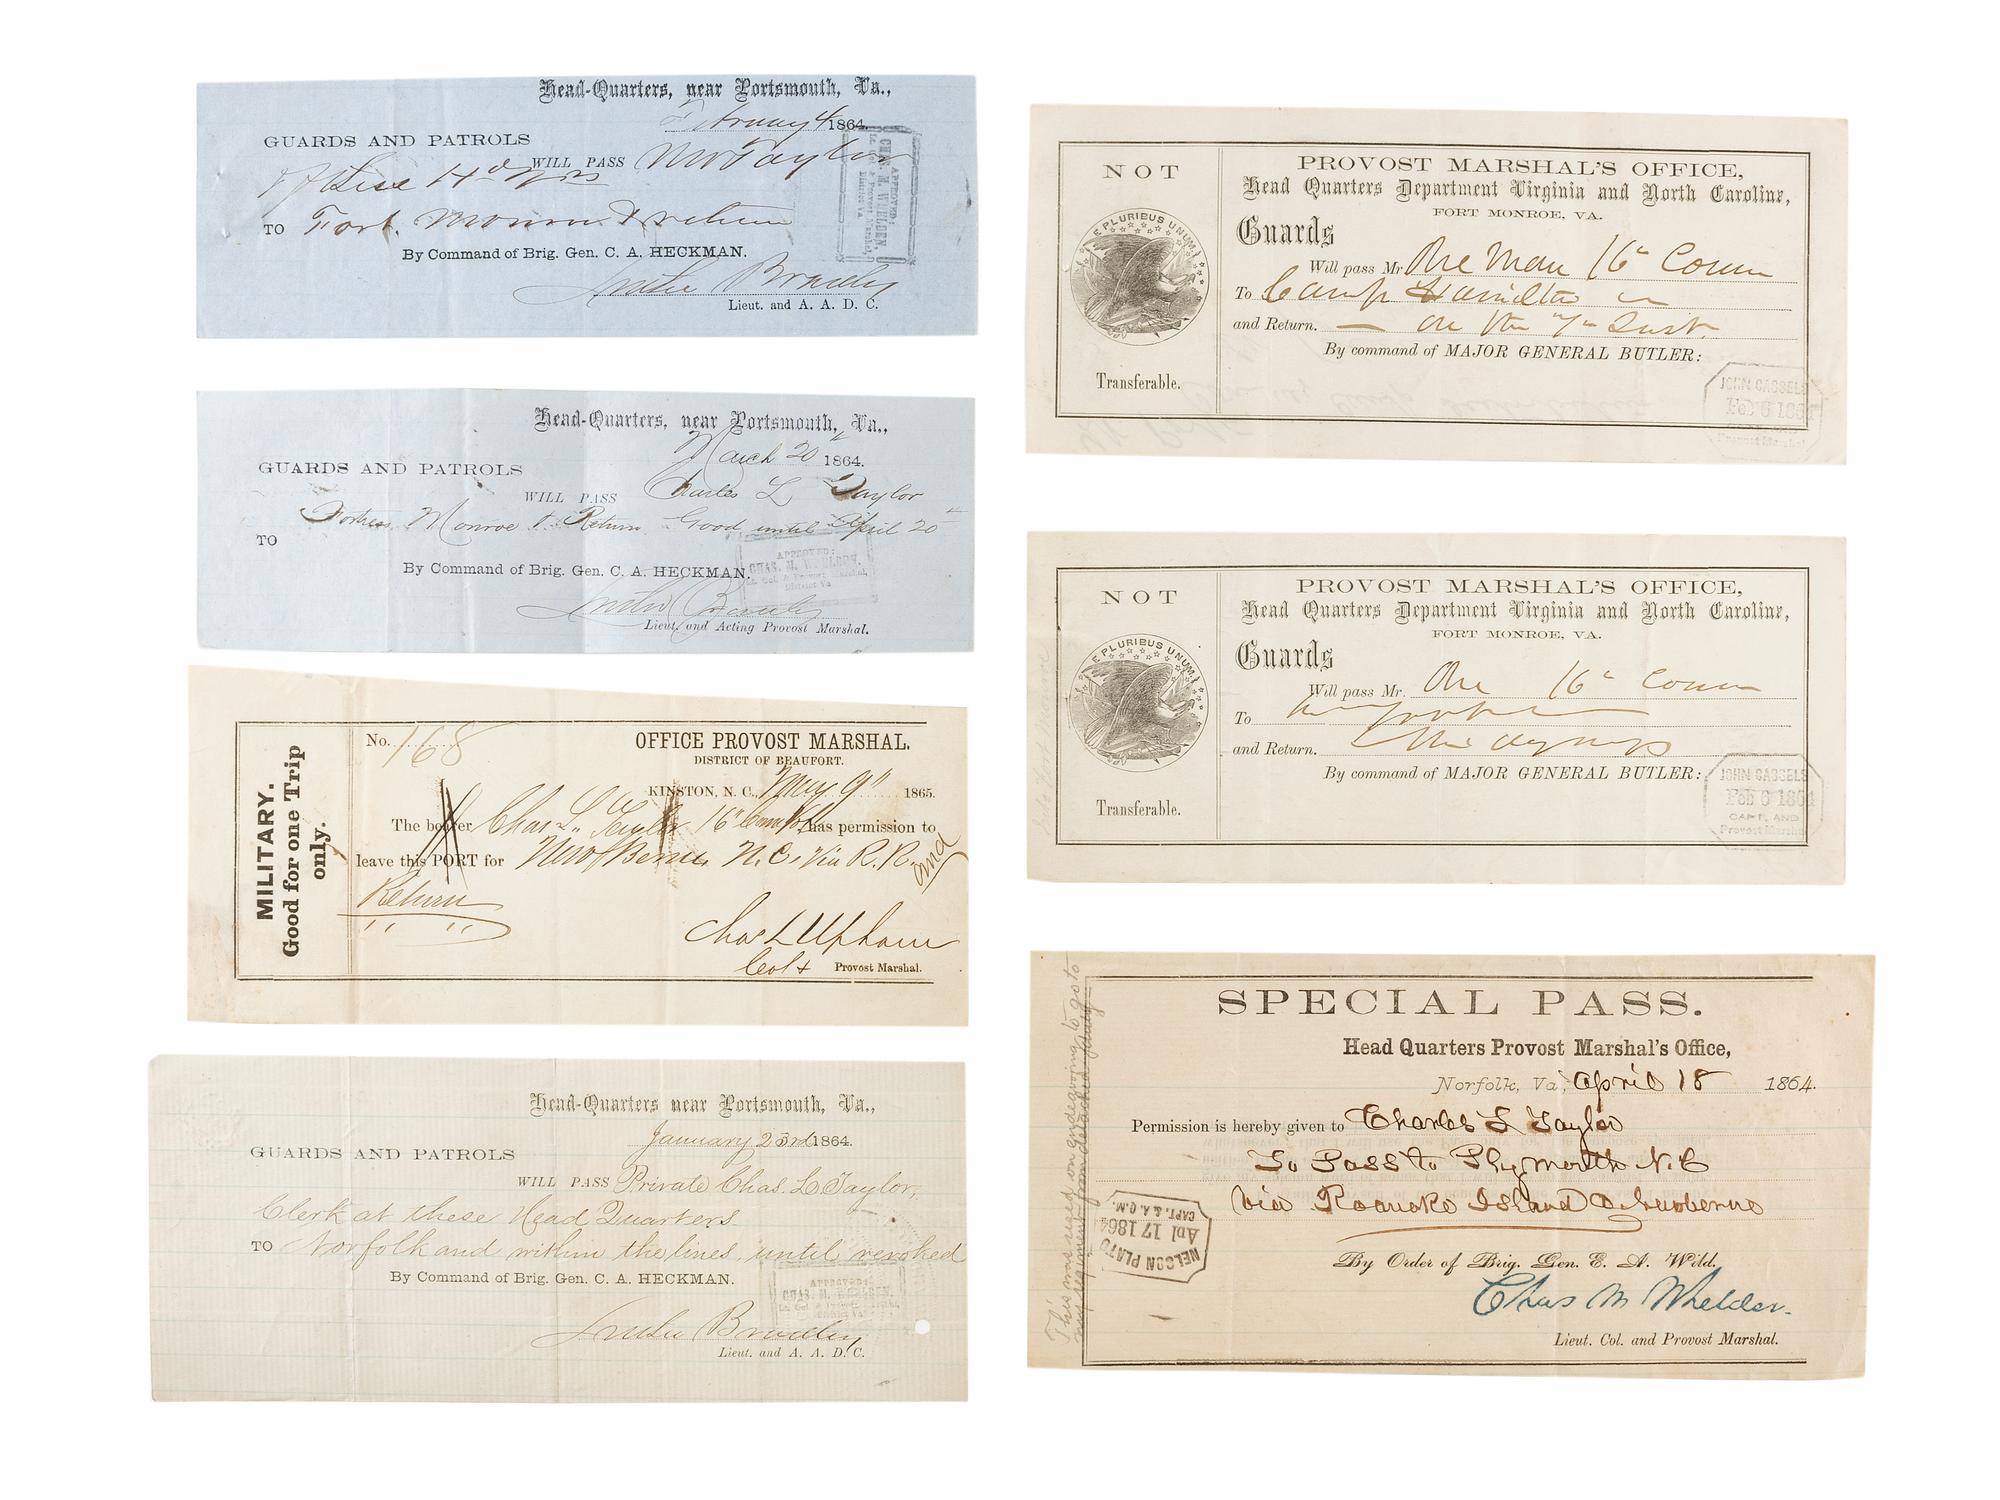 Head-Quarters, near Portsmouth, Va.,
February 4 1864.
GUARDS AND PATROLS
WILL PASS Mr Taylor
TO Fort. Monroe & return
By Command of Brig. Gen. C. A. HECKMAN.
Bradley
Lieut. and A. A. D. C.
APPROVED:
CHAS. M. WHELDEN,
Lt. Col. & Provost Marshal,
District Va.
Head-Quarters, near Portsmouth, Va.,
March 20th 1864.
GUARDS AND PATROLS
WILL PASS Charles L Taylor
TO Fortress Monroe & Return Good until April 20th
By Command of Brig. Gen. C. A. HECKMAN.
Bradley
Lieut. and Acting Provost Marshal.
APPROVED:
CHAS. M. WHELDEN,
Lt. Col. & Provost Marshal,
District Va
MILITARY.
Good for one Trip
only.
No. 168
OFFICE PROVOST MARSHAL.
DISTRICT OF BEAUFORT.
KINSTON, N. C., May 9" 1865.
The bearer Chas L. Taylor 16" Conn has permission to
leave this PORT for New Berne N.C. Via R. R. and
Return
" "
Chas L Upham
Col & Provost Marshal.
Head-Quarters near Portsmouth, Va.,
January 23rd 1864.
GUARDS AND PATROLS
WILL PASS Private Chas. L Taylor,
Clerk at these Head Quarters
TO Norfolk and within the lines, until revoked
By Command of Brig. Gen. C. A. HECKMAN.
Bradley
Lieut. and A. A. D. C.
APPROVED:
CHAS. M. WHELDEN,
Lt. Col & Provost Marshal,
District Va
NOT
E PLURIBUS UNUM
Transferable.
PROVOST MARSHAL'S OFFICE,
Head Quarters Department Virginia and North Carolina,
FORT MONROE, VA.
Guards
Will pass Mr One Man 16" Conn
To Camp Hamilton
and Return. — on the "7" Inst.
By command of MAJOR GENERAL BUTLER:
JOHN CASSELS
Feb 6 1864
Provost Marshal
NOT
E PLURIBUS UNUM
Transferable.
PROVOST MARSHAL'S OFFICE,
Head Quarters Department Virginia and North Carolina,
FORT MONROE, VA.
Guards
Will pass Mr. One 16" Conn
To
and Return.
By command of MAJOR GENERAL BUTLER:
JOHN CASSELS
Feb 6 1864
CAPT. AND
Provost Marshal
SPECIAL PASS.
Head Quarters Provost Marshal's Office,
Norfolk, Va, April 18 1864.
Permission is hereby given to Charles L Taylor
To Pass to Plymouth N.C
via Roanoke Island & Newberne
By Order of Brig. Gen. E. A. Wild.
Chas M Whelden.
Lieut. Col. and Provost Marshal.
NELSON PLATO
Apl 17 1864
CAPT. & A. Q. M.
This was used on endeavoring to go to
my regiment from detached duty